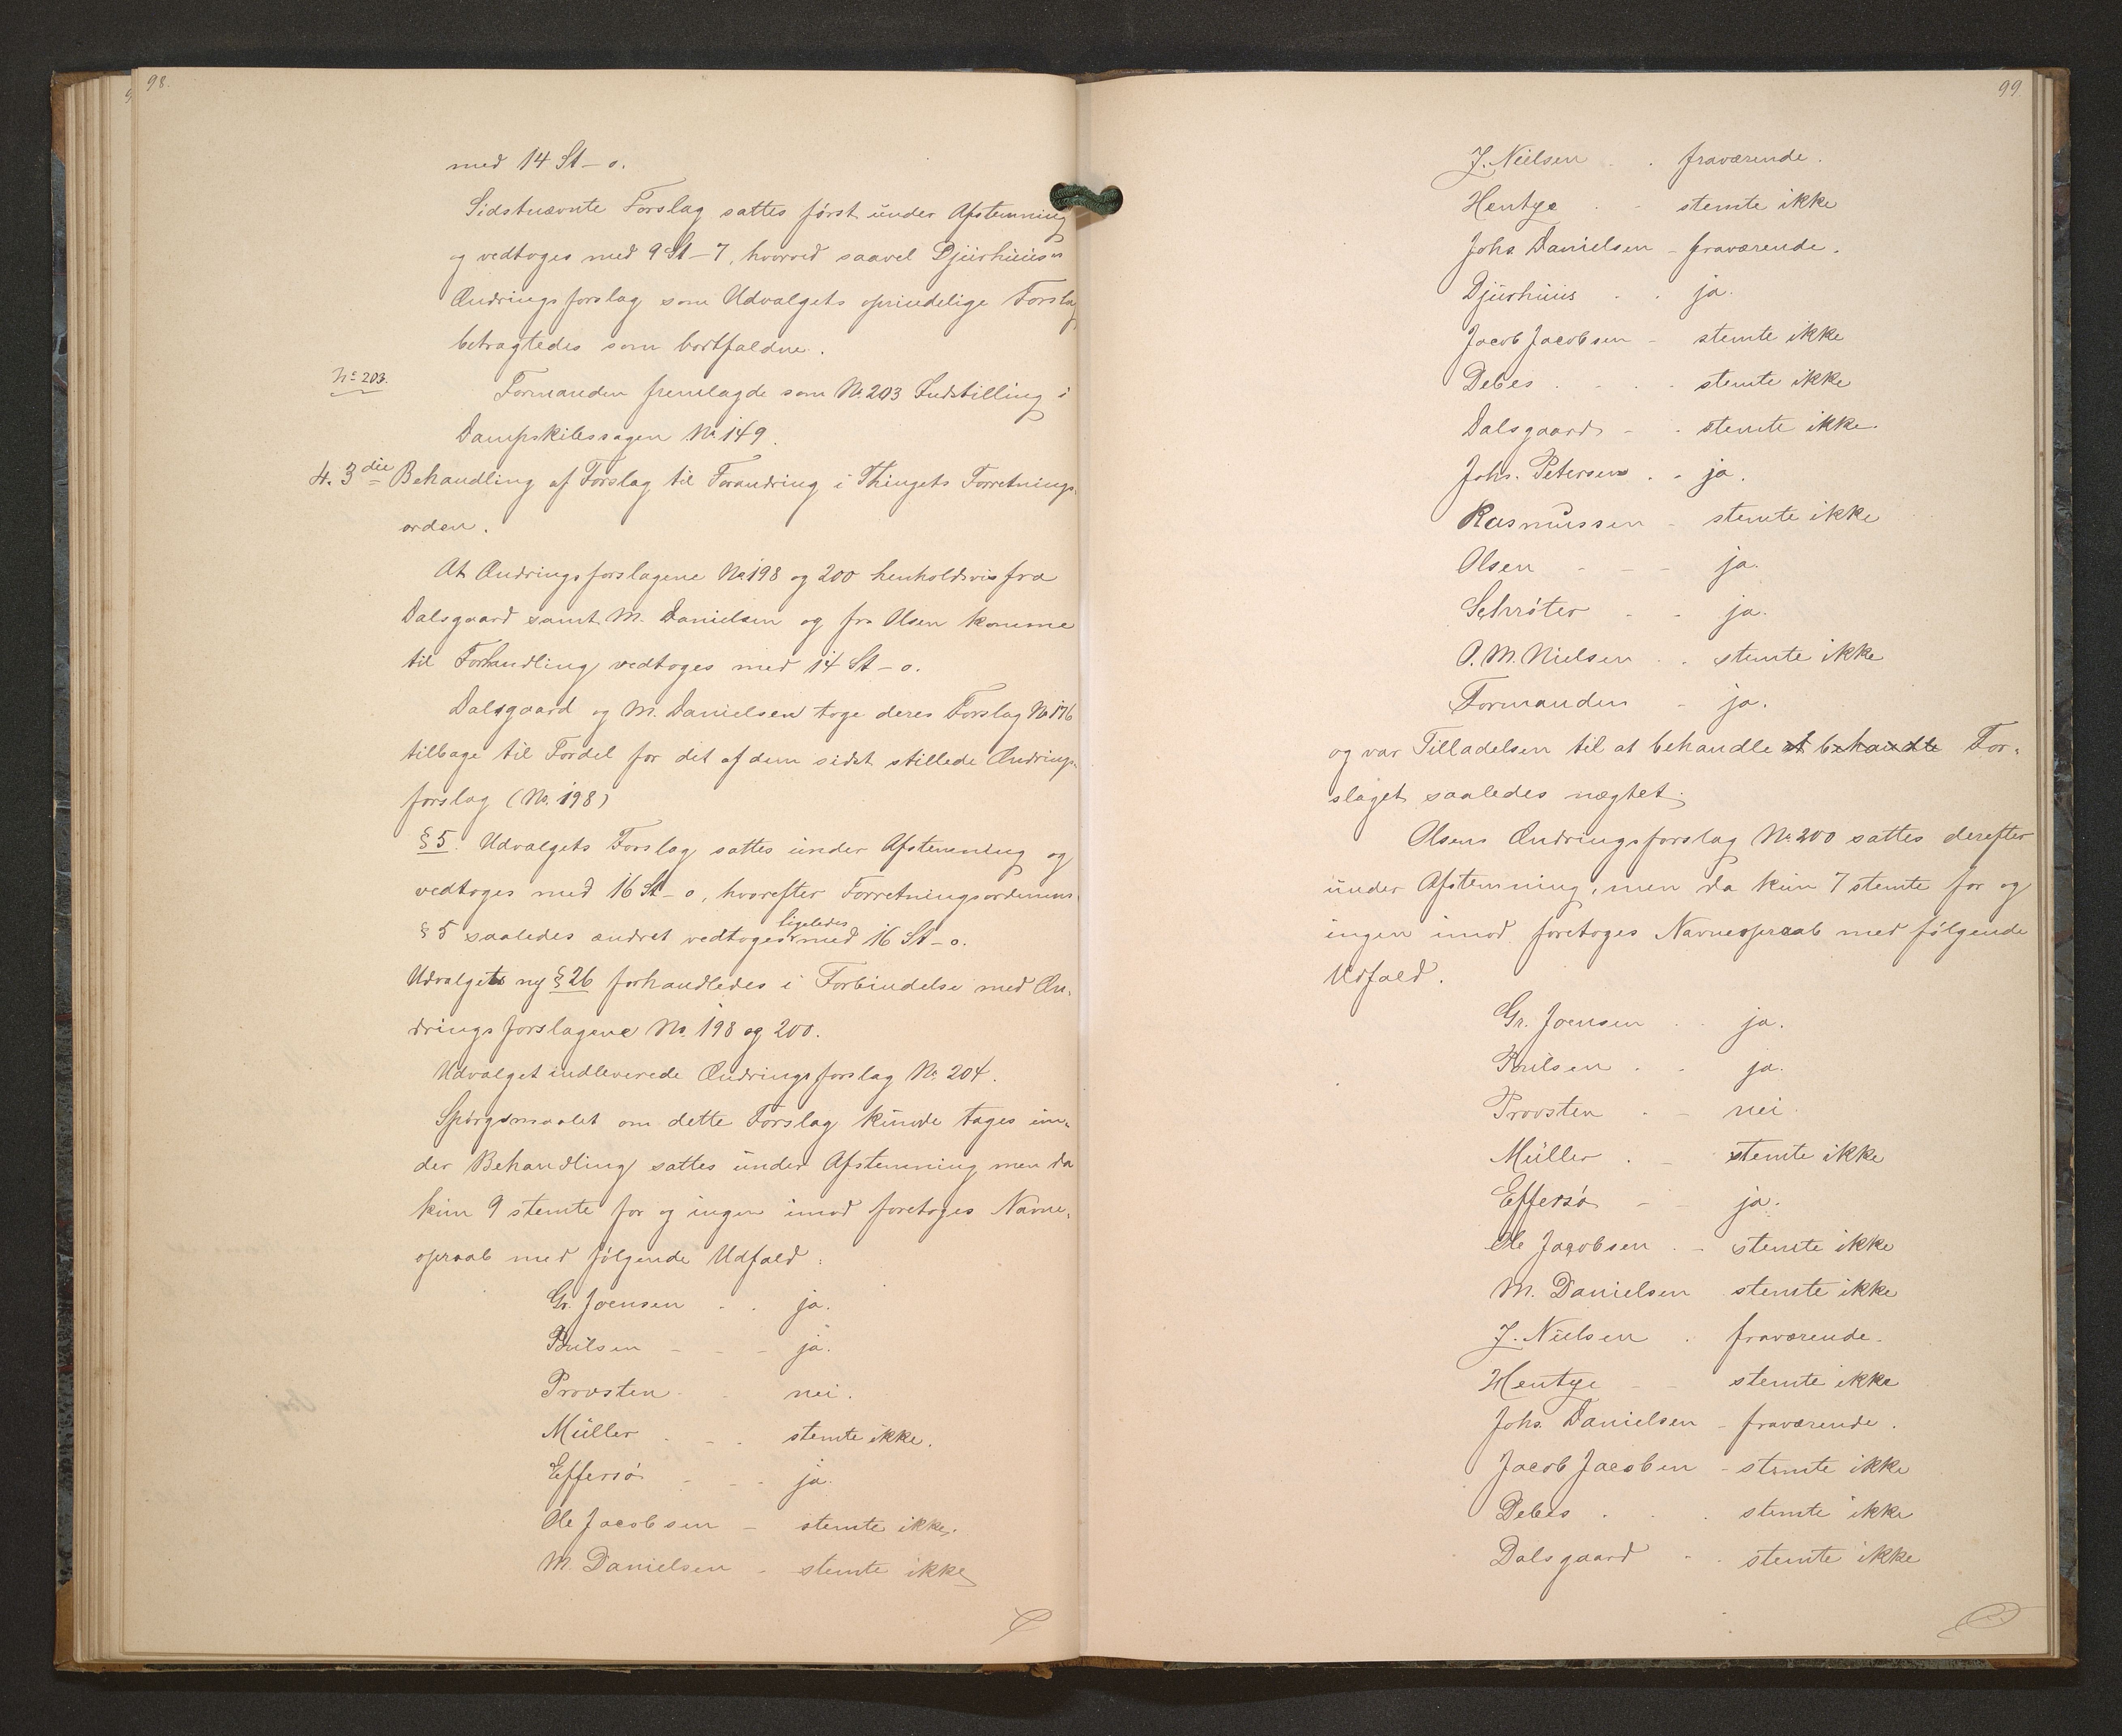 98.
med 14 St - 0.
Sidstnævnte Forslag sattes först under Afstemning
og vedtoges med 9 St - 7, hvorved saavel Djurhuus's
Ændringsforslag som Udvalgets oprindelige Forslag
betragtedes som bortfaldne.
No 203.
Formanden fremlagde som No 203 Indstilling i
Dampskibssagen No 149.
4. 3die Behandling af Forslag til Forandring i Thingets Forretnings-
orden.
At Ændringsforslagene No 198 og 200 henholdsvis fra
Dalsgaard samt M. Danielsen og fra Olsen komme
til Forhandling vedtoges med 14 St - 0.
Dalsgaard og M. Danielsen toge deres Forslag No 176
tilbage til Fordel for det af dem sidst stillede Ændrings-
forslag (No. 198)
§ 5. Udvalgets Forslag sattes under Afstemning og
vedtoges med 16 St - 0, hvorefter Forretningsordenens
§ 5 saaledes ændret vedtoges ligeledes med 16 St - 0.
Udvalgets ny § 26 forhandledes i Forbindelse med Æn-
dringsforslagene No. 198 og 200.
Udvalget indleverede Ændringsforslag No. 204.
Spörgsmaalet om dette Forslag kunde tages un-
der Behandling sattes under Afstemning men da
kun 9 stemte for og ingen imod foretoges Navne-
opraab med fölgende Udfald:
Gr. Joensen . . ja.
Poulsen - - - ja.
Provsten - . nei.
Müller . - . stemte ikke.
Effersö - - - ja.
Ole Jacobsen - stemte ikke.
M. Danielsen - stemte ikke
99.
J. Nielsen . . fraværende.
Hentze . - stemte ikke
Johs Danielsen - fraværende.
Djurhuus . . ja.
Jacob Jacobsen - stemte ikke
Debes . - . - stemte ikke
Dalsgaard - . stemte ikke.
Johs. Petersen . - ja.
Rasmussen - stemte ikke
Olsen - - - ja.
Schröter - - ja.
O. M. Nielsen . . stemte ikke
Formanden - ja.
og var Tilladelsen til at behandle at behandle For-
slaget saaledes nægtet.
Olsens Ændringsforslag No. 200 sattes derefter
under Afstemning, men da kun 7 stemte for og
ingen imod foretoges Navneopraab med fölgende
Udfald.
Gr. Joensen . . ja.
Poulsen . . ja.
Provsten . - nei.
Müller . - stemte ikke
Effersö - - ja.
Ole Jacobsen . - stemte ikke
M. Danielsen stemte ikke
J. Nielsen . fraværende.
Hentze - - stemte ikke
Johs. Danielsen - fraværende.
Jacob Jacobsen - stemte ikke
Debes . . . stemte ikke
Dalsgaard - . stemte ikke